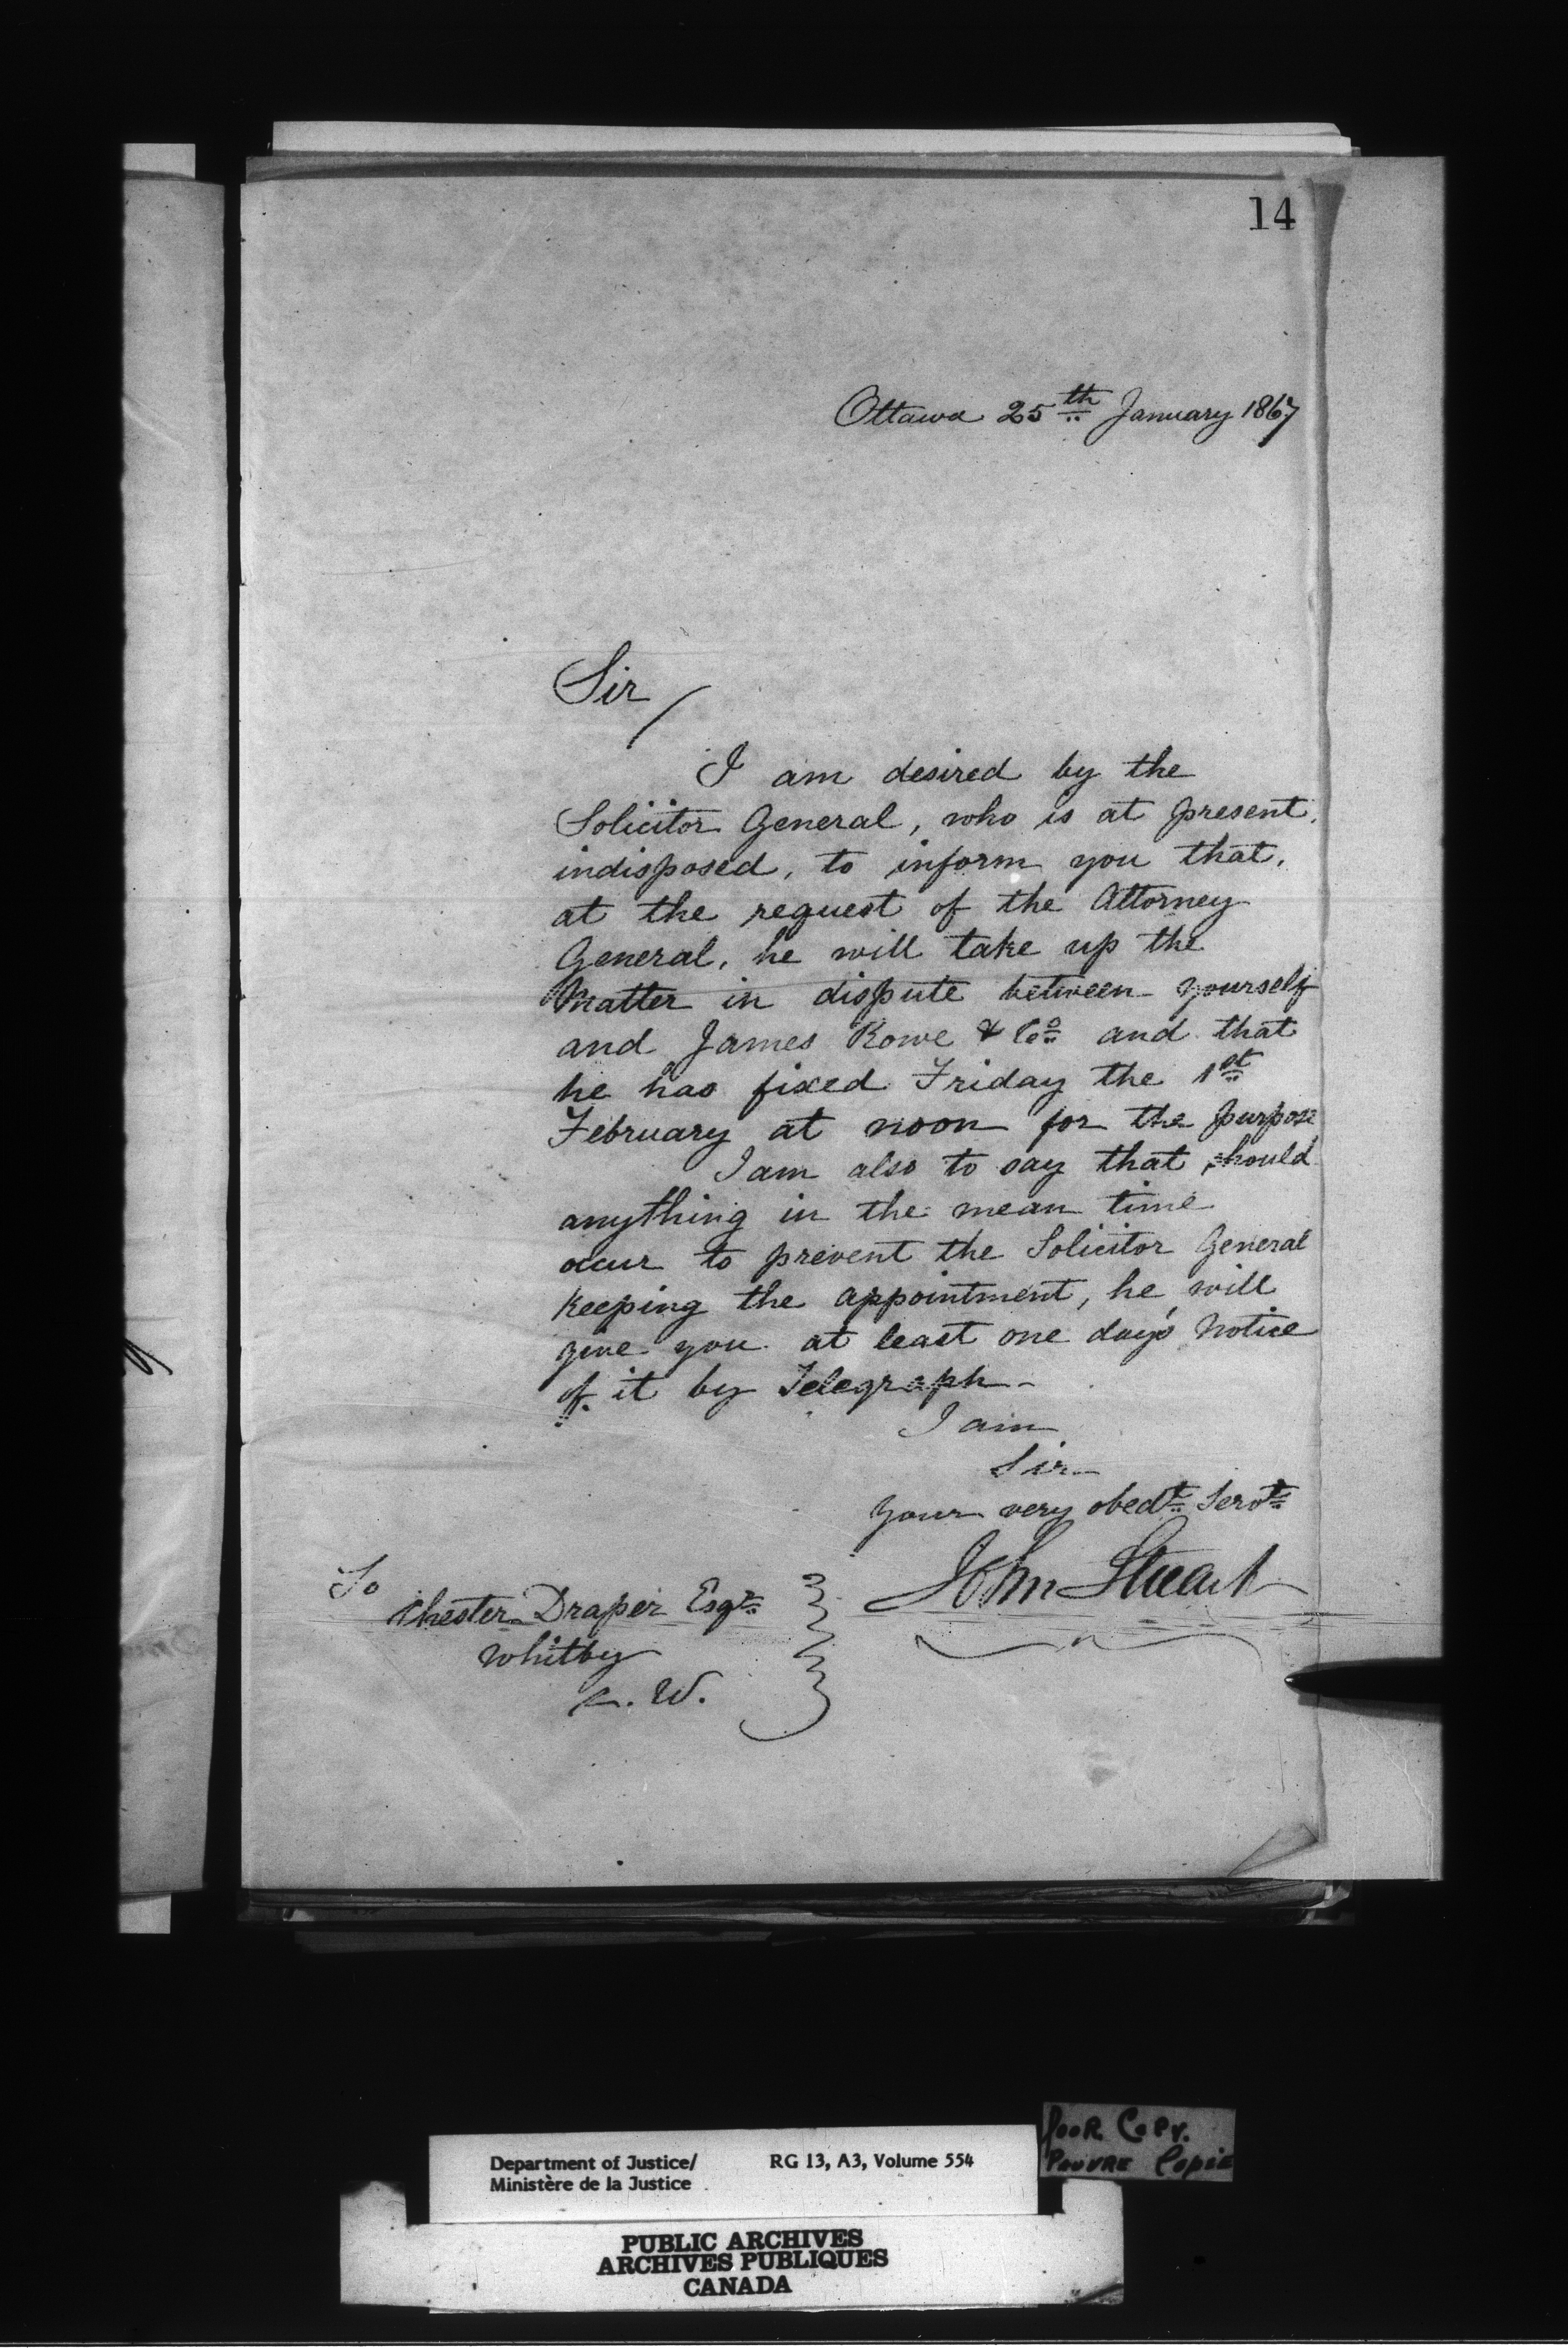 14
Ottawa 25th January 1867
Sir
I am desired by the
Solicitor General, who is at present,
indisposed, to inform you that,
at the request of the Attorney
General, he will take up the
Matter in dispute between yourself
and James Rowe & Co and that
he has fixed Friday the 1st
February at noon for the purpose
I am also to say that should
anything in the mean time
occur to prevent the Solicitor General
keeping the appointment, he will
give you at least one day's notice
of it by Telegraph-
I am
Sir
Your very obedt Servt
John Stuart
To
Chester Draper Esqr
Whitby
C. W.
Department of Justice/
Ministère de la Justice
RG 13, A3, Volume 554
Poor Copy.
Pauvre Copie
PUBLIC ARCHIVES
ARCHIVES PUBLIQUES
CANADA